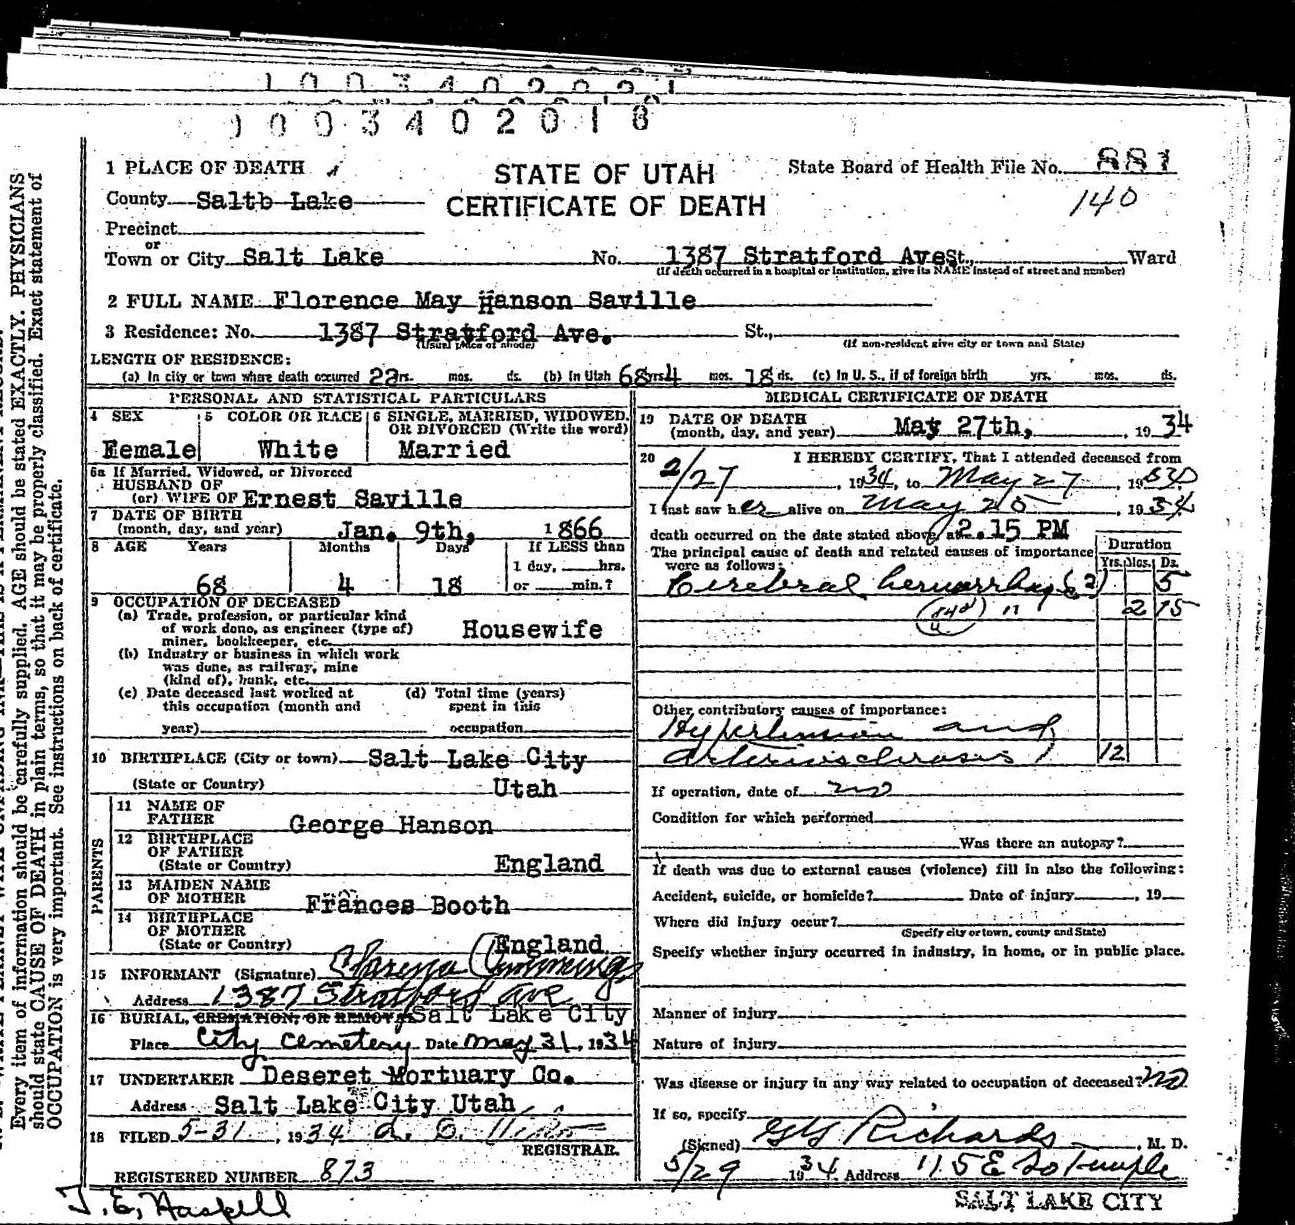 1003402021
1003402018
1 PLACE OF DEATH
STATE OF UTAH
CERTIFICATE OF DEATH
State Board of Health File No. 881
140
County Saltb Lake
Precinct
or
Town or City Salt Lake No. 1387 Stratford Ave St., Ward
(If death occurred in a hospital or institution, give its NAME instead of street and number)
2 FULL NAME Florence May Hanson Saville
3 Residence: No. 1387 Stratford Ave. St.,
(Usual place of abode) (If non-resident give city or town and State)
LENGTH OF RESIDENCE:
(a) In city or town where death occurred 22 yrs. mos. ds. (b) In Utah 68 yrs. 4 mos. 18 ds. (c) In U. S., if of foreign birth yrs. mos. ds.
PERSONAL AND STATISTICAL PARTICULARS
4 SEX
Female
5 COLOR OR RACE
White
6 SINGLE, MARRIED, WIDOWED, OR DIVORCED (Write the word)
Married
6a If Married, Widowed, or Divorced
HUSBAND OF
(or) WIFE OF Ernest Saville
7 DATE OF BIRTH
(month, day, and year) Jan. 9th, 1866
8 AGE Years Months Days If LESS than
1 day, hrs.
68 4 18 or min.?
9 OCCUPATION OF DECEASED
(a) Trade, profession, or particular kind
of work done, as engineer (type of)
miner, bookkeeper, etc. Housewife
(b) Industry or business in which work
was done, as railway, mine
(kind of), bank, etc.
(c) Date deceased last worked at
this occupation (month and
year)
(d) Total time (years)
spent in this
occupation
10 BIRTHPLACE (City or town) Salt Lake City
(State or Country) Utah
PARENTS
11 NAME OF
FATHER George Hanson
12 BIRTHPLACE
OF FATHER
(State or Country) England
13 MAIDEN NAME
OF MOTHER Frances Booth
14 BIRTHPLACE
OF MOTHER
(State or Country) England
15 INFORMANT (Signature) Cummings
Address 1387 Stratford Ave
16 BURIAL, CREMATION, OR REMOVAL Salt Lake City
Place City Cemetery Date May 31, 1934
17 UNDERTAKER Deseret Mortuary Co.
Address Salt Lake City Utah
18 FILED 5-31, 1934
REGISTRAR.
REGISTERED NUMBER 873
J. E. Haskell
MEDICAL CERTIFICATE OF DEATH
19 DATE OF DEATH
(month, day, and year) May 27th, , 19 34
20 I HEREBY CERTIFY, That I attended deceased from
2/27, 1934, to May 27, 1934
I last saw her alive on May 25, 1934
death occurred on the date stated above, at 2.15 PM
The principal cause of death and related causes of importance
were as follows:
Duration
Yrs. Mos. Ds.
Cerebral hemorrhage (2) 5
" 2 15
Other contributory causes of importance:
Hypertension and
arteriosclerosis 12
If operation, date of no
Condition for which performed
Was there an autopsy?
If death was due to external causes (violence) fill in also the following:
Accident, suicide, or homicide? Date of injury , 19
Where did injury occur?
(Specify city or town, county and State)
Specify whether injury occurred in industry, in home, or in public place.
Manner of injury
Nature of injury
Was disease or injury in any way related to occupation of deceased? no
If so, specify
(Signed) GG Richards, M. D.
5/29 1934 Address 115 E So Temple
SALT LAKE CITY
Every item of information should be carefully supplied. AGE should be stated EXACTLY. PHYSICIANS
should state CAUSE OF DEATH in plain terms, so that it may be properly classified. Exact statement of
OCCUPATION is very important. See instructions on back of certificate.